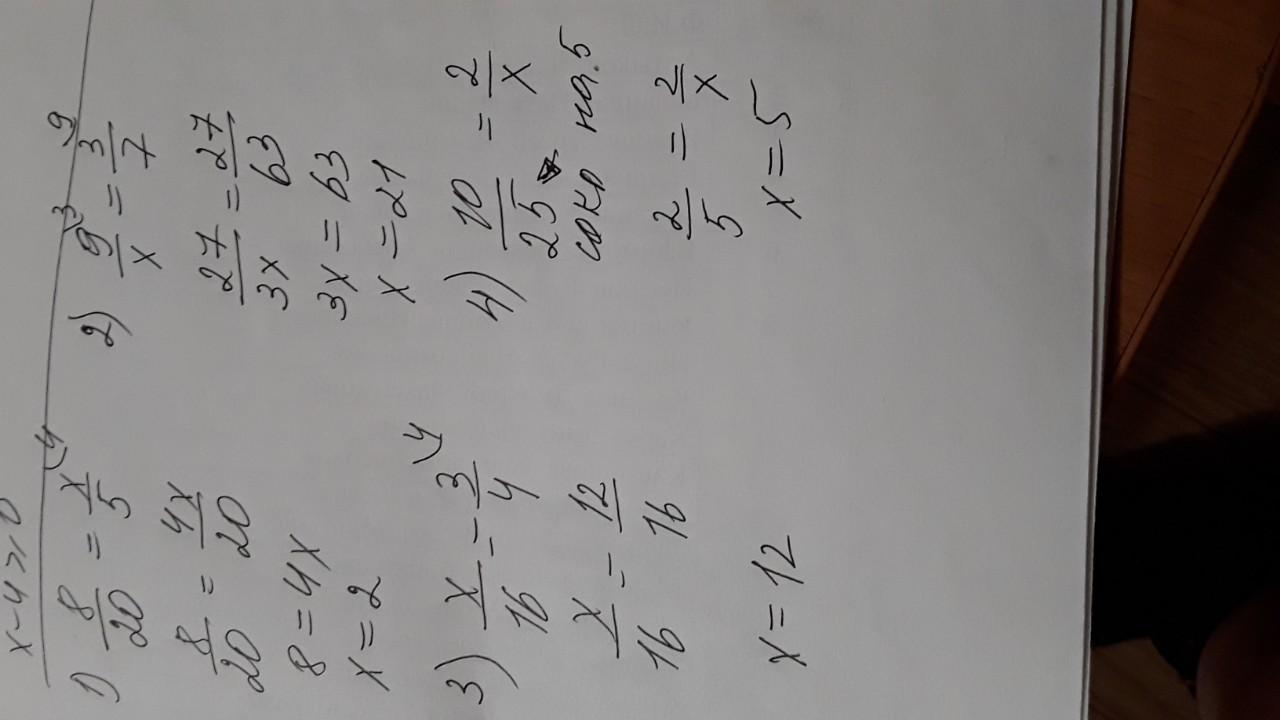 x-4≥0
1) 8/20 = x/5 \4
8/20 = 4x/20
8=4x
x=2
2) 9/x \3 = 3/7 \9
27/3x = 27/63
3x=63
x=21
3) x/16 = 3/4 \4
x/16 = 12/16
x=12
4) 10/25 = 2/x
сокр на 5
2/5 = 2/x
x=5